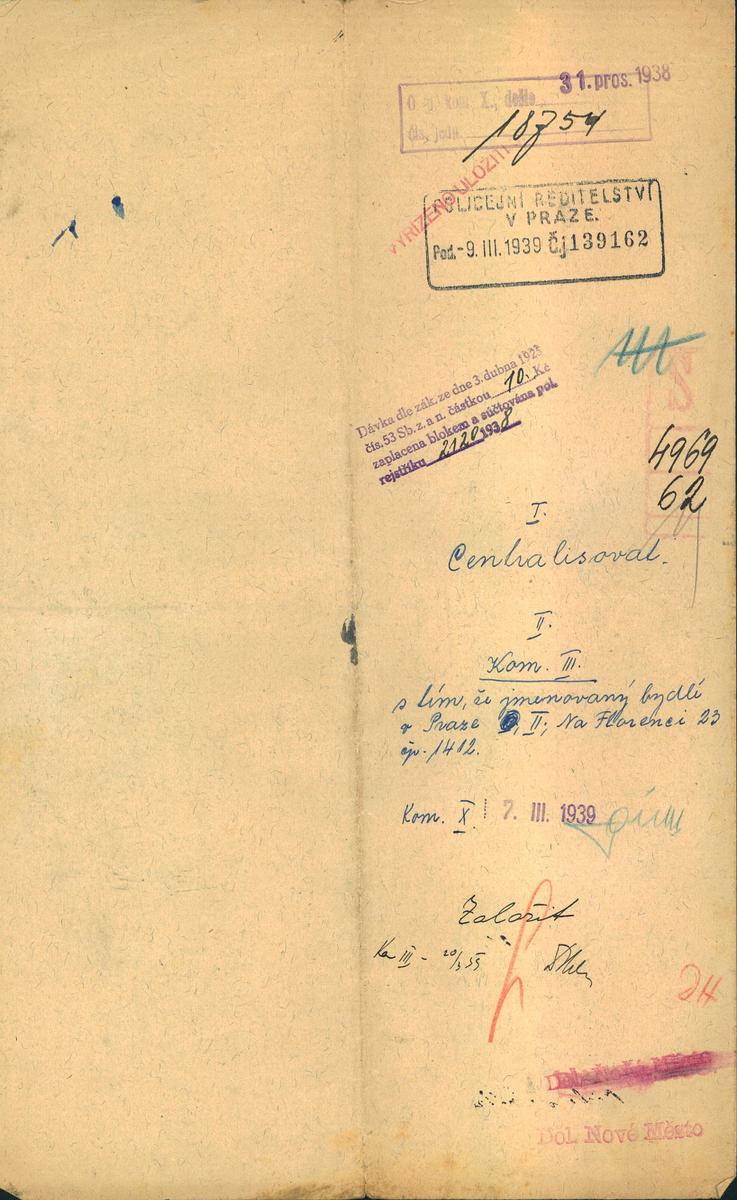 31. pros. 1938
kom. X., došlo
čís. jedn.
18754
VYŘÍZENO ULOŽIT!
POLICEJNÍ ŘEDITELSTVÍ
V PRAZE.
Pod. -9. III. 1939 Čj 139162
Dávka dle zák. ze dne 3. dubna 1925
čís. 53 Sb. z. a n. částkou 10.- Kč
zaplacena blokem a súčtována pol.
rejstříku 2120 1938
4969
62
I.
Centralisovat.
II.
Kom. III.
s tím, že jmenovaný bydlí
v Praze II; Na Florenci 23
čp. 1412.
Kom. X 7. III. 1939
Založit
Ka III -
Dol. Nové Město